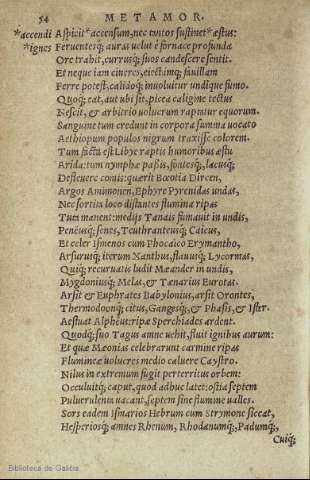 54 METAMOR.
*accendi Aspicit* accensum, nec tantos sustinet* æstus:
*ignes Feruentesq; auras velut è fornace profunda
Ore trahit, currusq; suos candescere sentit.
Et neque iam cineres, eiectamq; fauillam
Ferre potest, calidoq; inuoluitur undique fumo.
Quoq; eat, aut ubi sit, picea caligine tectus
Nescit, & arbitrio uolucrum raptatur equorum.
Sanguine tum credunt in corpora summa uocato
Aethiopum populos nigrum traxisse colorem.
Tum facta est Libye raptis humoribus æstu
Arida: tum nymphæ passis, fontesq;, lacusq;
Defleuere comis: quærit Bœotia Dircen,
Argos Amimonen, Ephyre Pyrenidas undas,
Nec sortita loco distantes flumina ripas
Tuta manent: medijs Tanais fumauit in undis,
Peneusq; senex, Teuthranteusq; Caicus,
Et celer Ismenos cum Phocaico Erymantho,
Arsurusq; iterum Xanthus, flauusq; Lycormas,
Quiq; recuruatis ludit Mæander in undis,
Mygdoniusq; Melas, & Tænarius Eurotas.
Arsit & Euphrates Babylonius, arsit Orontes,
Thermodoonq; citus, Gangesq;, & Phasis, & Ister.
Aestuat Alpheus: ripæ Sperchiades ardent.
Quodq; suo Tagus amne uehit, fluit ignibus aurum:
Et quæ Mæonias celebrarant carmine ripas
Flumineæ uolucres medio caluere Caystro.
Nilus in extremum fugit perterritus orbem:
Occuluitq; caput, quod adhuc latet: ostia septem
Puluerulenta uacant, septem sine flumine ualles.
Sors eadem Ismarios Hebrum cum Strymone siccat,
Hesperiosq; amnes Rhenum, Rhodanumq;, Padumq;,
Cuiq;
Biblioteca de Galicia